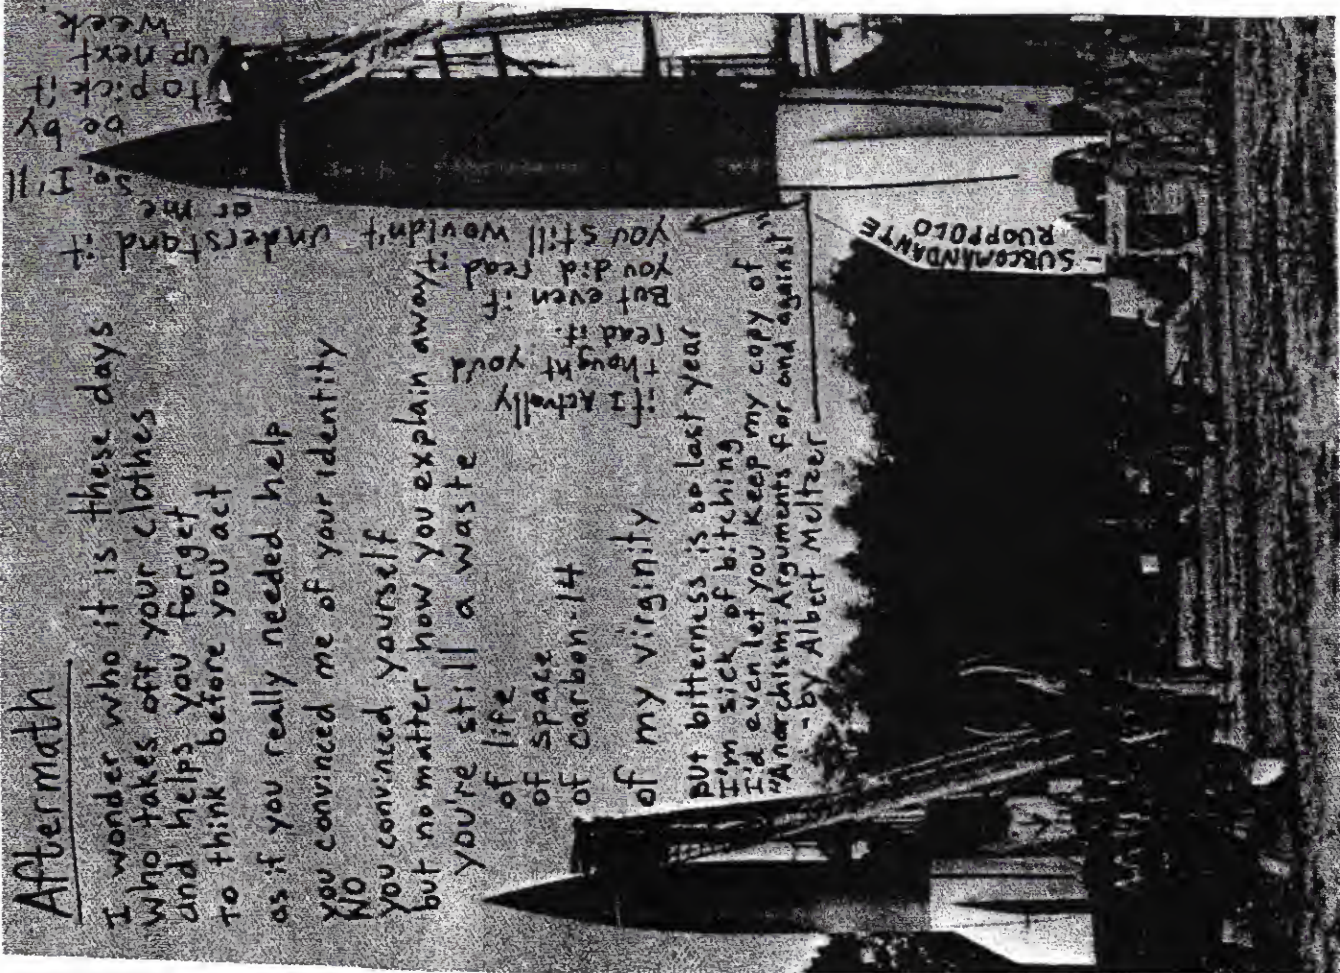 Aftermath
I wonder who it is these days
who takes off your clothes
and helps you forget
to think before you act
as if you really needed help
you convinced me of your identity
NO
you convinced yourself
but no matter how you explain away
you're still a waste
of life
of space
of carbon-14
of my virginity
but bitterness is so last year
I'm sick of bitching
I'd even let you keep my copy of
"Anarchism: Arguments for and against"
- by Albert Meltzer
if I actually
thought you'd
read it.
But even if
you did read it
you still wouldn't understand it
or me
So, I'll
be by
to pick it
up next
week.
- SUBCOMANDANTE
RUOPPOLO